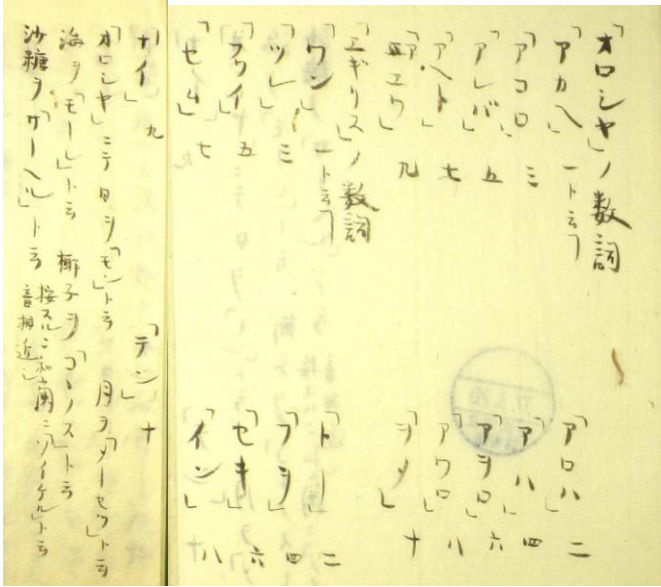 「オロシヤ」ノ数詞
「アカヘ」一ト云フ 「アロハ」二
「アコロ」三 「アハ」四
「アレバ」五 「アヲロ」六
「アヘト」七 「アワロ」八
「アエワ」九 「ヲメ」十
「エギリス」ノ数詞
「ワン」一ト云フ 「トー」二
「ツレ」三 「フヲ」四
「フワイ」五 「セキ」六
「セム」七 「イン」八
「ナイ」九 「テン」十
「オロシヤ」ニテ日ヲ「モン」ト云 月ヲ「メーセウ」ト云
海ヲ「モール」ト云 椰子ヲ「コーノス」ト云
沙糖ヲ「サーヘル」ト云 按スルニ和蘭ニソイケルト云音相近シ